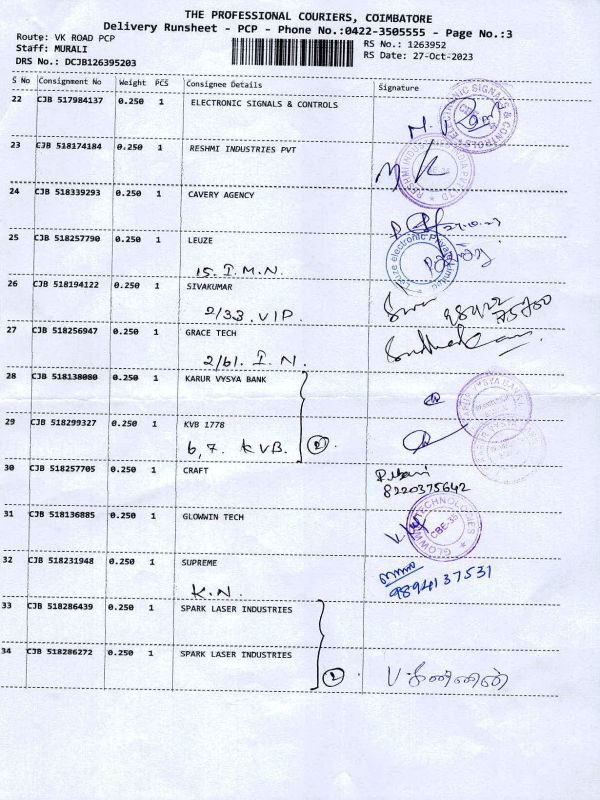 THE PROFESSIONAL COURIERS, COIMBATORE
Delivery Runsheet - PCP - Phone No.:0422-3505555 - Page No.:3
Route: VK ROAD PCP
Staff: MURALI
DRS No.: DCJB126395203
RS No.: 1263952
RS Date: 27-Oct-2023
S No Consignment No Weight PCS Consignee Details Signature
22 CJB 517984137 0.250 1 ELECTRONIC SIGNALS & CONTROLS
23 CJB 518174184 0.250 1 RESHMI INDUSTRIES PVT
24 CJB 518339293 0.250 1 CAVERY AGENCY
25 CJB 518257790 0.250 1 LEUZE
15. I.M.N.
26 CJB 518194122 0.250 1 SIVAKUMAR
2/33. VIP.
27 CJB 518256947 0.250 1 GRACE TECH
2/61. I.N.
28 CJB 518138080 0.250 1 KARUR VYSYA BANK
29 CJB 518299327 0.250 1 KVB 1778
6,7. KVB. 2
30 CJB 518257705 0.250 1 CRAFT
8220375642
31 CJB 518136885 0.250 1 GLOWWIN TECH
32 CJB 518231948 0.250 1 SUPREME
K.N.
9894137531
33 CJB 518286439 0.250 1 SPARK LASER INDUSTRIES
34 CJB 518286272 0.250 1 SPARK LASER INDUSTRIES
2